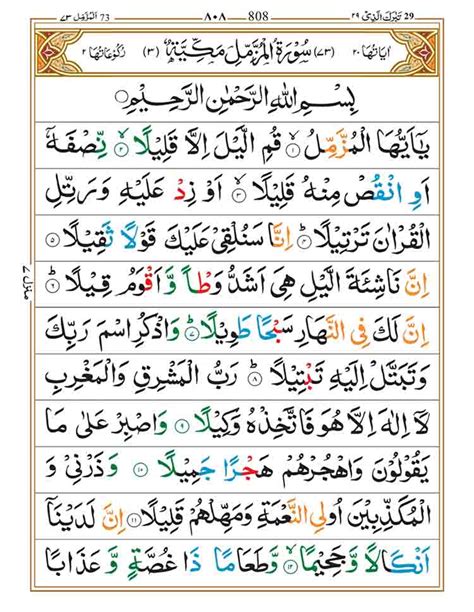 73 اَلْمُزَّمِّل ٧٣ ٨٠٨ 808 تَبٰرَكَ الَّذِیْ ٢٩ 29
اٰیَاتُهَا ٢٠ (٧٣) سُوْرَةُ الْمُزَّمِّلِ مَكِّیَّةٌ (٣) رُكُوْعَاتُهَا ٢
بِسْمِ اللّٰهِ الرَّحْمٰنِ الرَّحِیْمِ
یٰۤاَیُّهَا الْمُزَّمِّلُ ۙ١ قُمِ الَّیْلَ اِلَّا قَلِیْلًا ۙ٢ نِّصْفَهٗۤ
اَوِ انْقُصْ مِنْهُ قَلِیْلًا ۙ٣ اَوْ زِدْ عَلَیْهِ وَ رَتِّلِ
الْقُرْاٰنَ تَرْتِیْلًا ؕ٤ اِنَّا سَنُلْقِیْ عَلَیْكَ قَوْلًا ثَقِیْلًا ٥
اِنَّ نَاشِئَةَ الَّیْلِ هِیَ اَشَدُّ وَطْاً وَّ اَقْوَمُ قِیْلًا ؕ٦
اِنَّ لَكَ فِی النَّهَارِ سَبْحًا طَوِیْلًا ؕ٧ وَ اذْكُرِ اسْمَ رَبِّكَ
وَ تَبَتَّلْ اِلَیْهِ تَبْتِیْلًا ؕ٨ رَبُّ الْمَشْرِقِ وَ الْمَغْرِبِ
لَاۤ اِلٰهَ اِلَّا هُوَ فَاتَّخِذْهُ وَكِیْلًا ٩ وَ اصْبِرْ عَلٰى مَا
یَقُوْلُوْنَ وَ اهْجُرْهُمْ هَجْرًا جَمِیْلًا ١٠ وَ ذَرْنِیْ وَ
الْمُكَذِّبِیْنَ اُولِی النَّعْمَةِ وَ مَهِّلْهُمْ قَلِیْلًا ١١ اِنَّ لَدَیْنَاۤ
اَنْكَالًا وَّ جَحِیْمًا ۙ١٢ وَّ طَعَامًا ذَا غُصَّةٍ وَّ عَذَابًا
منزل ٧